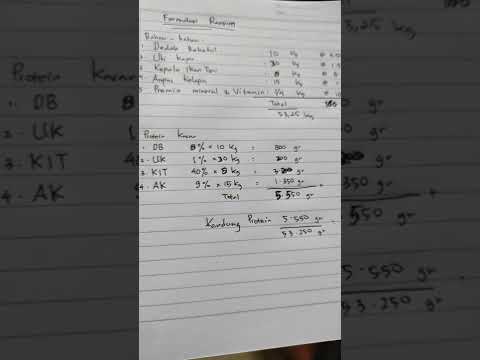 Formulasi Ransum
Bahan - bahan
1. Dedak Bekatul 10 kg
2. Ubi kayu 30 kg
3. Kepala Ikan Teri 8 kg
4. Ampas Kelapa 15 kg
5. Premix mineral & Vitamin: 1/4 kg
Total
53,25 kg
Protein Kasar
1. DB 8% x 10 kg = 800 gr
2. UK 1% x 30 kg = 300 gr
3. KIT 40% x 8 kg = gr
4. AK 9% x 15 kg = 1.350 gr
Total 5.550 gr
Kandung Protein 5.550 gr
53.250 gr
Protein Kasar
1. DB 8
2. UK
3. KIT 40
4. AK
gr
gr
gr
350 gr
550 gr
5.550 gr
53.250 gr